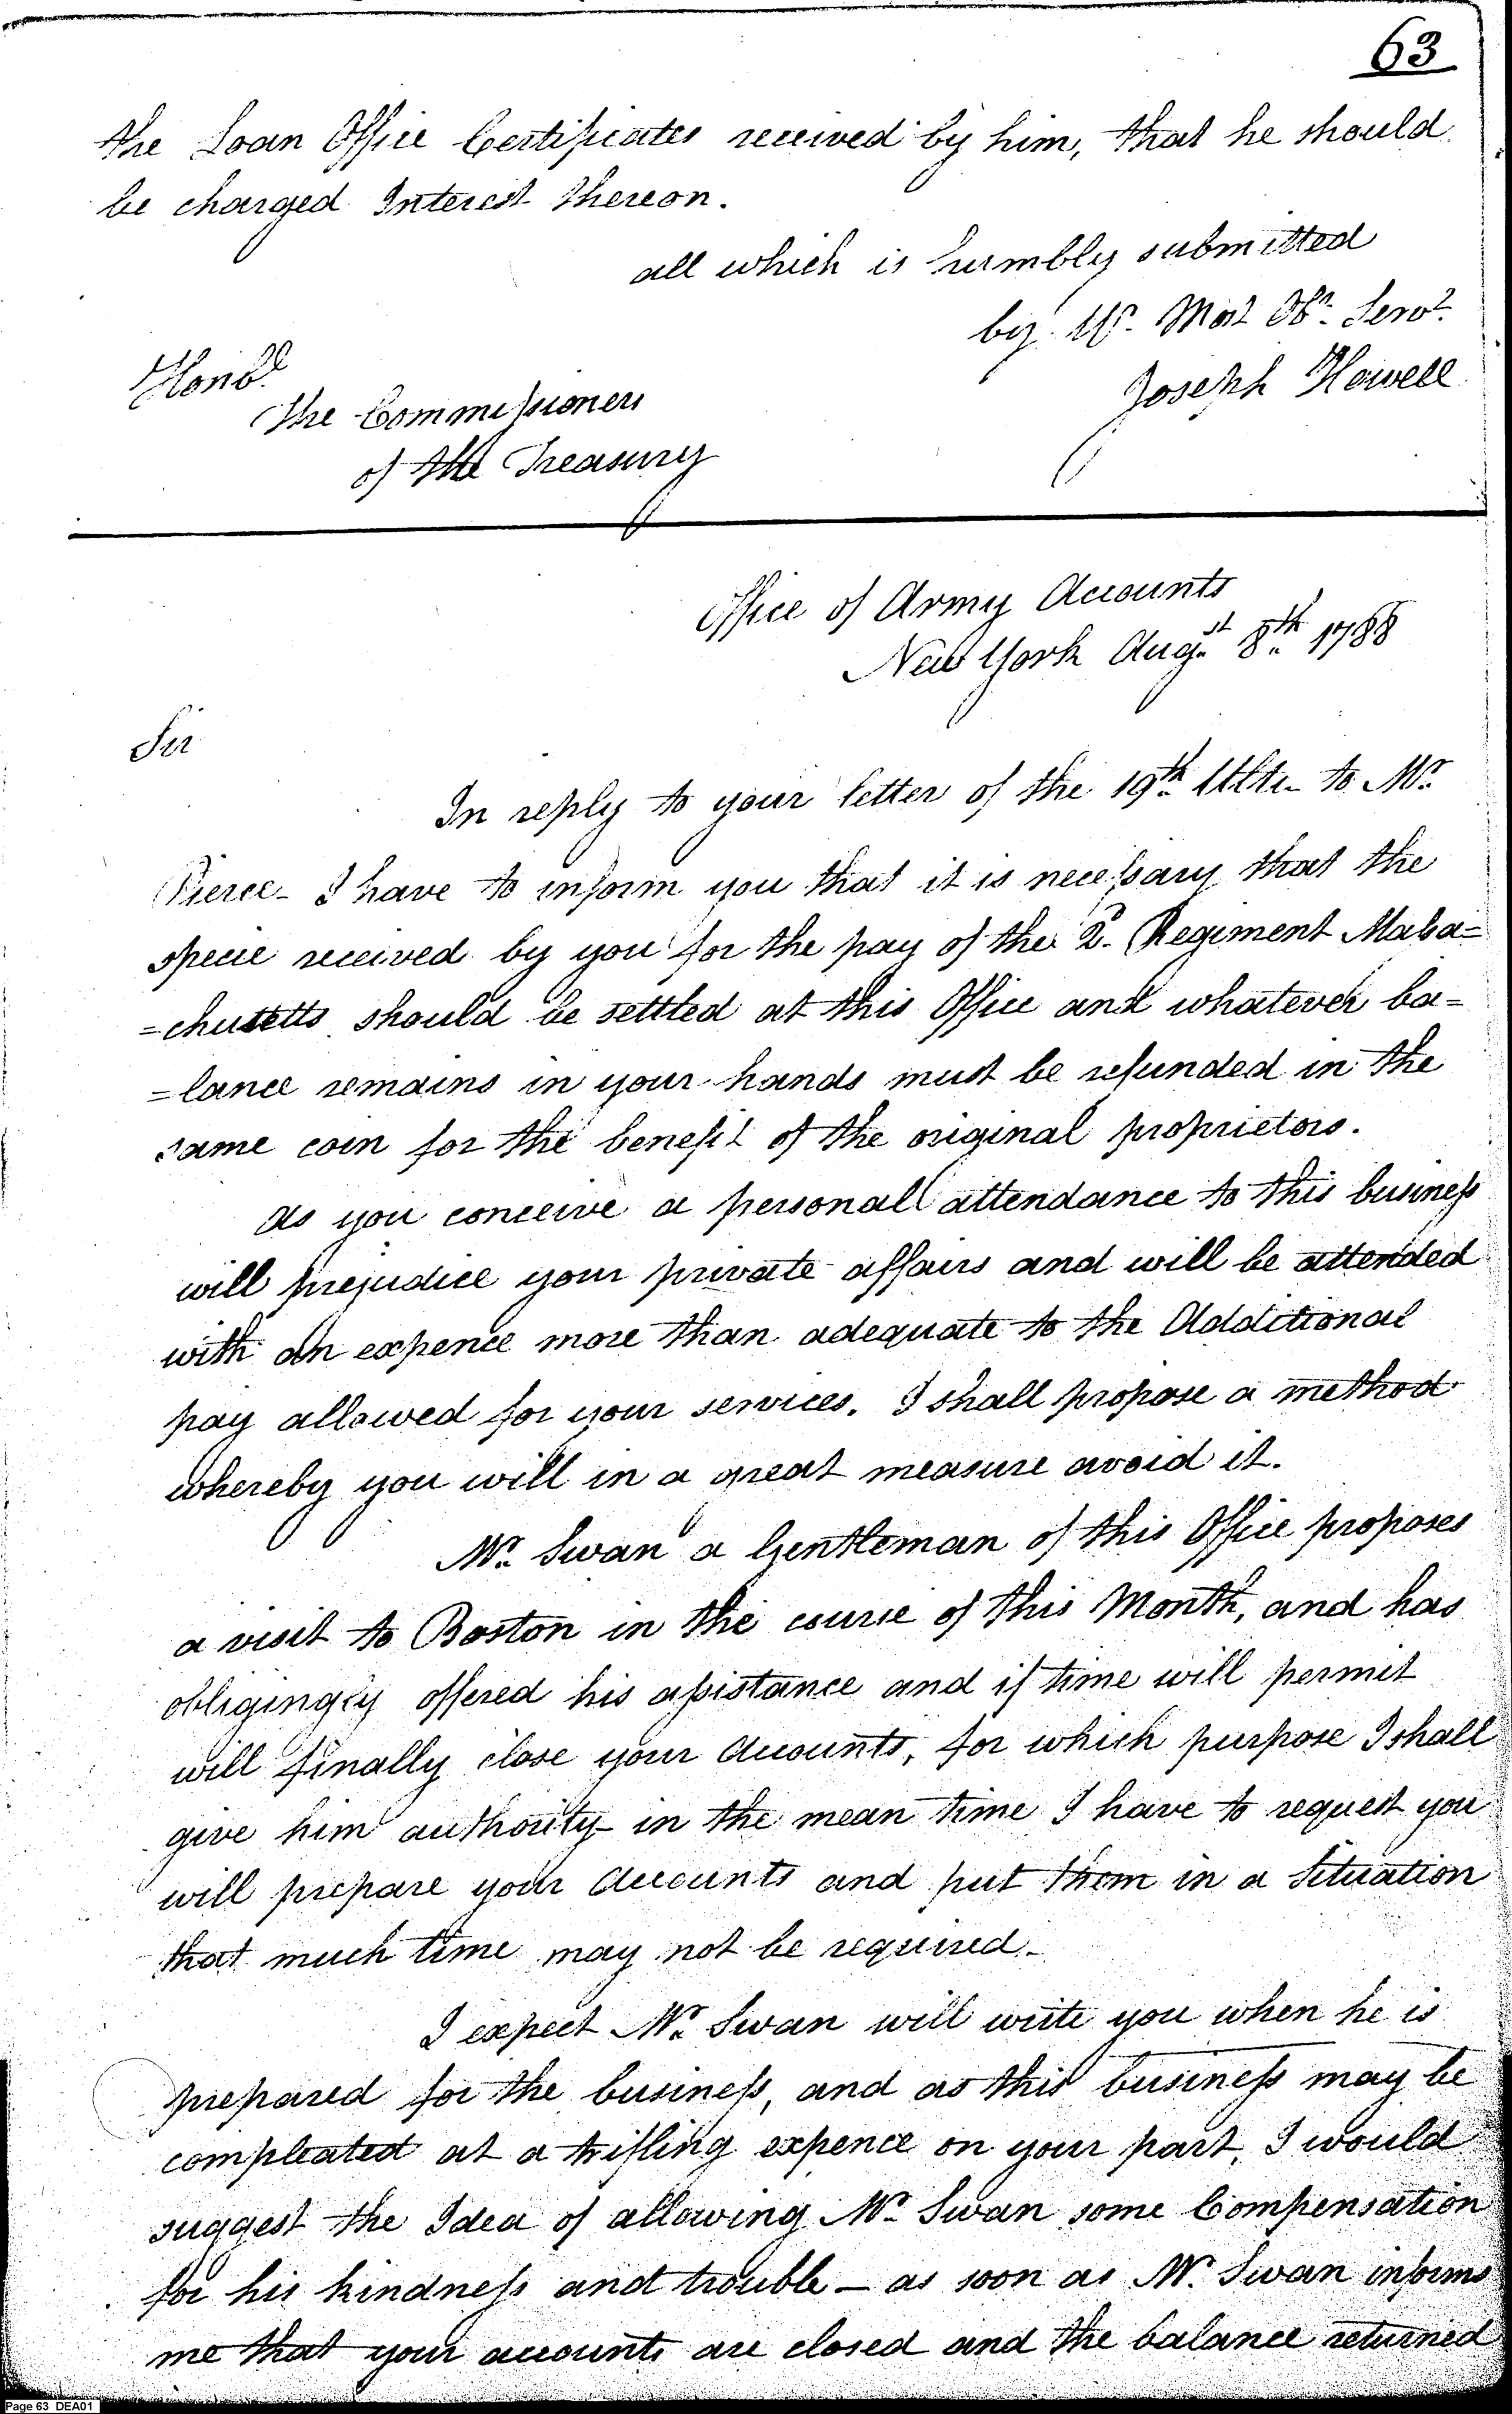 63
the Loan Office Certificates received by him, that he should
be charged Interest thereon.
all which is humbly submitted
by Yr. Most Obt. Servt.
Joseph Howell
Honble.
The Commissioners
of the Treasury
Office of Army Accounts
New York Augst. 8th. 1788
Sir
In reply to your letter of the 19th. Ulto. to Mr.
Pierce - I have to inform you that it is necessary that the
specie received by you for the pay of the 2d. Regiment Massa=
=chusetts should be settled at this Office and whatever ba=
=lance remains in your hands must be refunded in the
same coin for the benefit of the original proprietors.
as you conceive a personal attendance to this business
will prejudice your private affairs and will be attended
with an expence more than adequate to the Additional
pay allowed for your services. I shall propose a method
whereby you will in a great measure avoid it.
Mr. Swan a Gentleman of this Office proposes
a visit to Boston in the course of this Month, and has
obligingly offered his assistance and if time will permit
will finally close your Accounts, for which purpose I shall
give him authority - in the mean time I have to request you
will prepare your Accounts and put them in a Situation
that much time may not be required -
I expect Mr. Swan will write you when he is
prepared for the business, and as this business may be
compleated at a trifling expence on your part, I would
suggest the Idea of allowing Mr. Swan some Compensation
for his kindness and trouble - as soon as Mr. Swan informs
me that your accounts are closed and the balance returned
Page 63 DEA01